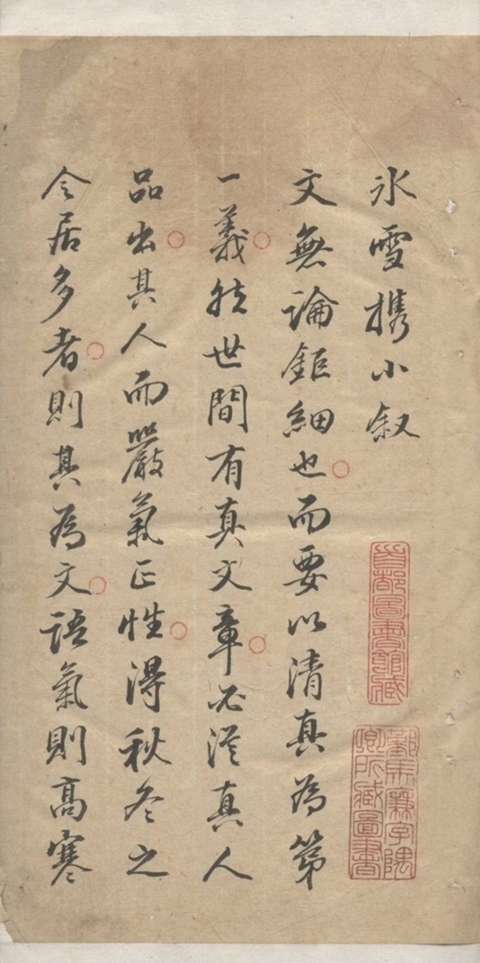 冰雪携小叙
文無論鉅細也而要以清真為第
一義然世間有真文章必從真人
品出其人而嚴氣正性得秋冬之
令居多者則其為文語氣則高寒
首都圖書館藏
鄞馬廉字隅
卿所藏圖書